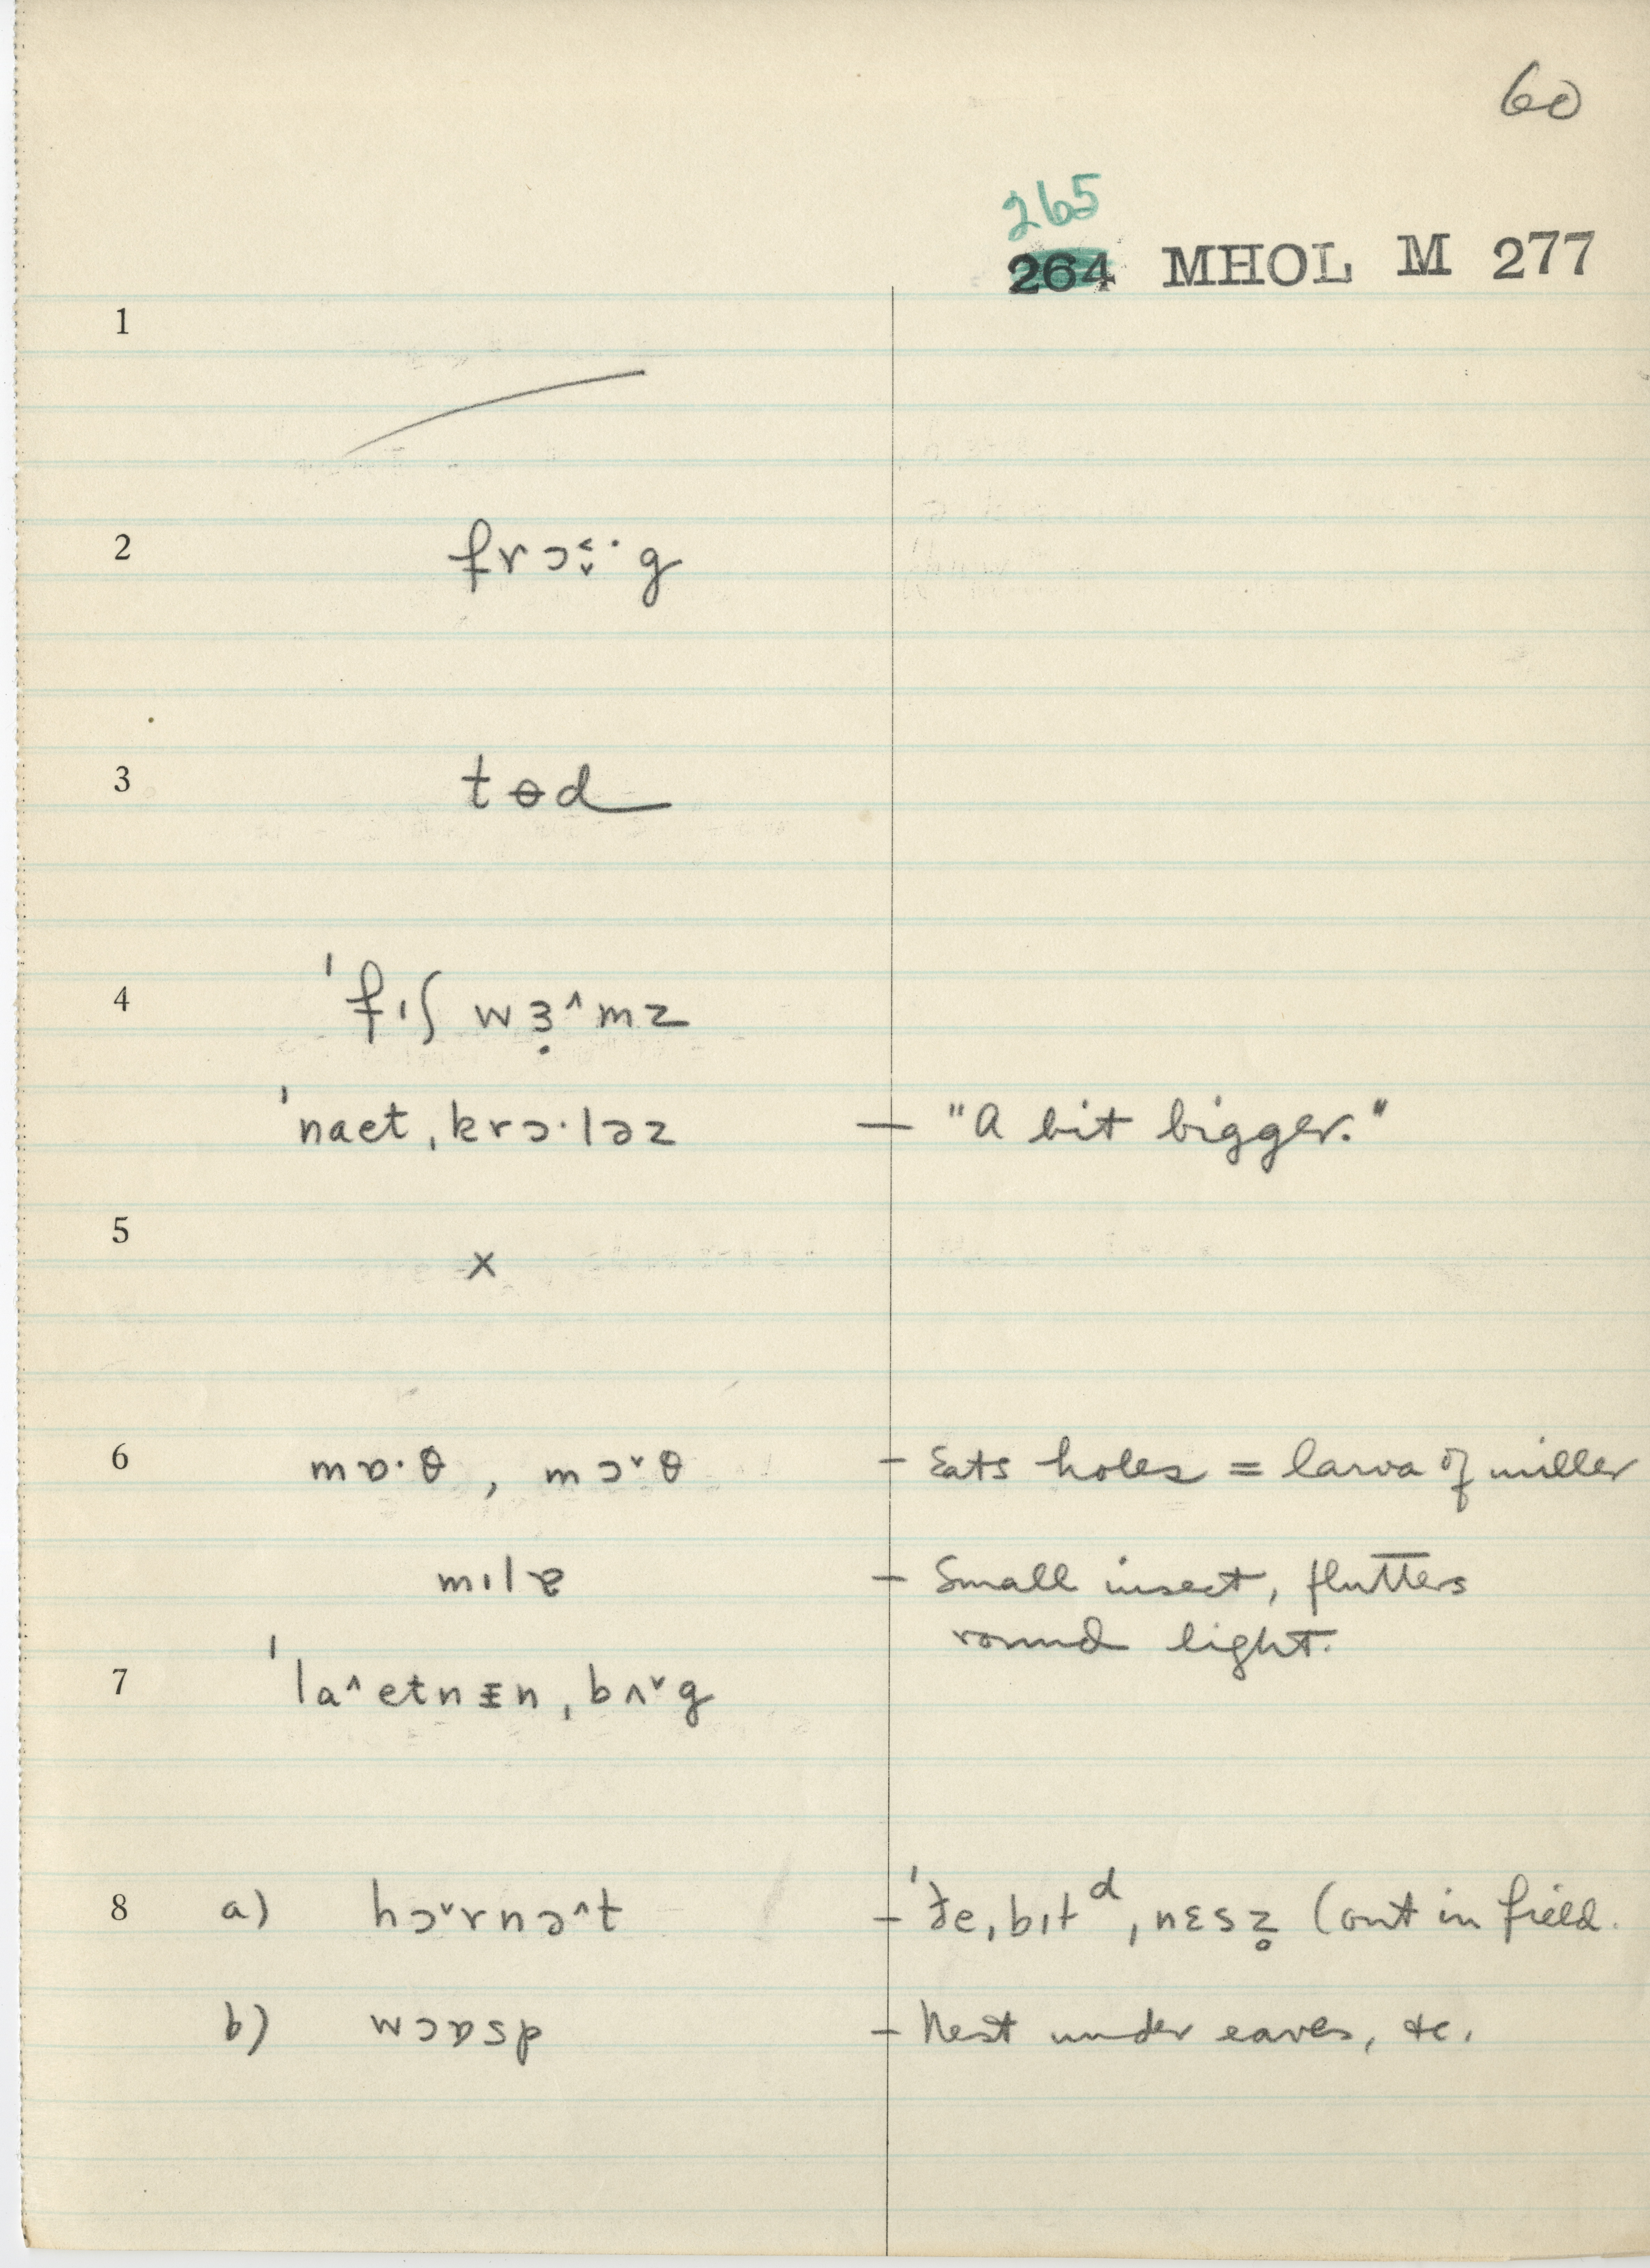 60
265
264 MHOL M 277
1
2 frɔ˂̣˅·g
3 tɵd
4 ˈfɪʃ wɜ̣˄mz
ˈnaetˌkrɔ·ləz — "A bit bigger."
5 x
6 mɒ·θ , mɔ˅θ – Eats holes = larva of miller
mɪlɐ – Small insect, flutters
round light.
7 ˈla˄etnɪ̵nˌbʌ˅g
8 a) hɔ˅rnə˄t – ˈðeˌbɪldˌnɛsz̥ (out in field.
b) wɔɒsp – Nest under eaves, &c.